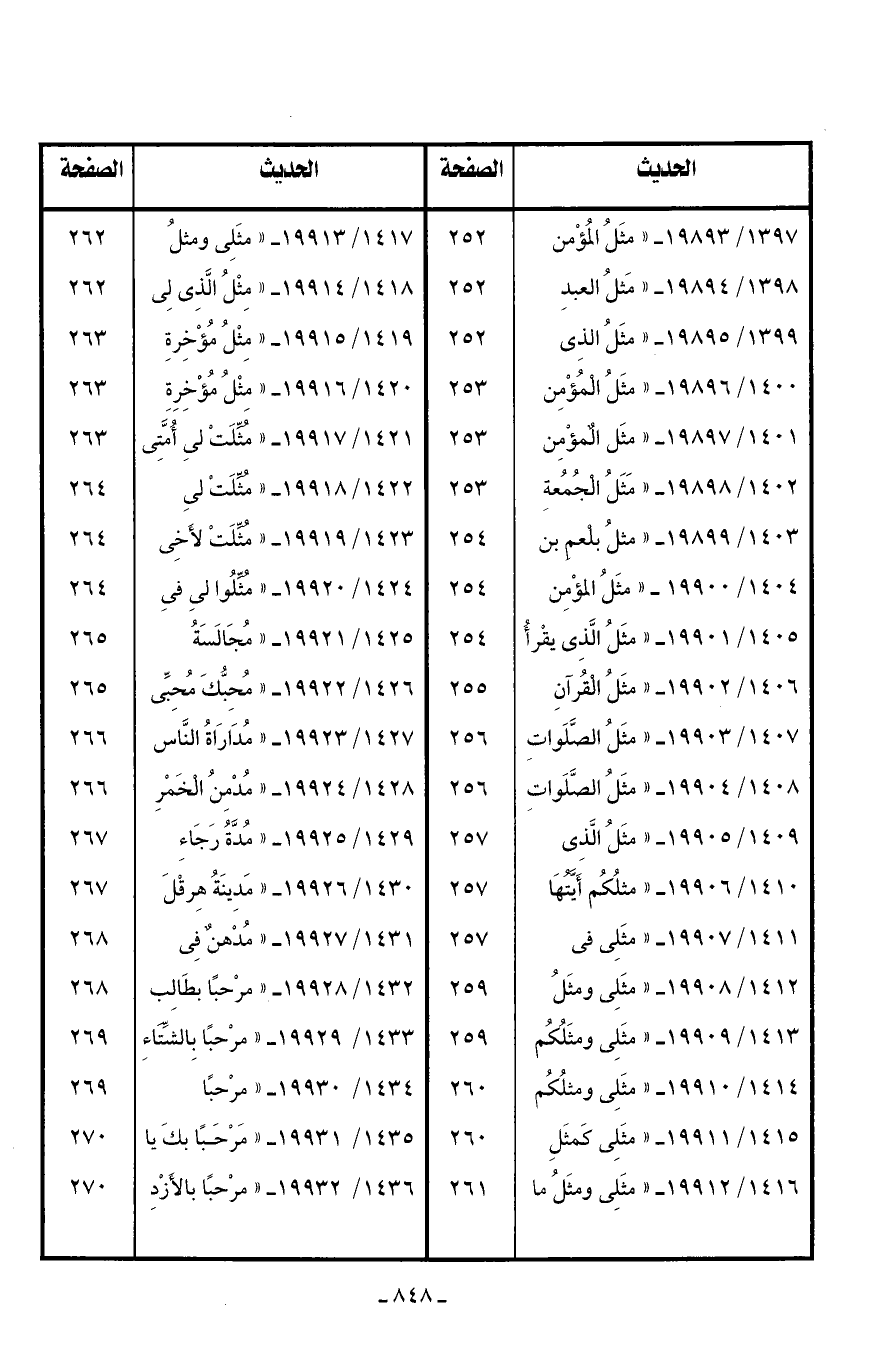 الحديث الصفحة الحديث الصفحة
١٣٩٧/ ١٩٨٩٣ـ « مثَلُ المُؤْمن ٢٥٢ ١٤١٧/ ١٩٩١٣ـ « مثَلِى ومثلُ ٢٦٢
١٣٩٨/ ١٩٨٩٤ـ « مَثلُ العبدِ ٢٥٢ ١٤١٨/ ١٩٩١٤ـ « مِثْلُ الَّذِى لِى ٢٦٢
١٣٩٩/ ١٩٨٩٥ـ « مثَلُ الذِى ٢٥٢ ١٤١٩/ ١٩٩١٥ـ « مِثْلُ مُؤْخِرةِ ٢٦٣
١٤٠٠/ ١٩٨٩٦ـ « مثَلُ الْمُؤْمِن ٢٥٣ ١٤٢٠/ ١٩٩١٦ـ « مِثْلُ مُؤْخِرةِ ٢٦٣
١٤٠١/ ١٩٨٩٧ـ « مثَل المُؤْمِن ٢٥٣ ١٤٢١/ ١٩٩١٧ـ « مُثِّلَتْ لِى أُمَّتِى ٢٦٣
١٤٠٢/ ١٩٨٩٨ـ « مَثَلُ الْجُمُعةِ ٢٥٣ ١٤٢٢/ ١٩٩١٨ـ « مُثِّلَتْ لِى ٢٦٤
١٤٠٣/ ١٩٨٩٩ـ « مثلُ بلْعمِ بن ٢٥٤ ١٤٢٣/ ١٩٩١٩ـ « مُثِّلَتْ لأَخِى ٢٦٤
١٤٠٤/ ١٩٩٠٠ ـ « مثَلُ المؤْمِن ٢٥٤ ١٤٢٤/ ١٩٩٢٠ـ « مُثِّلُوا لِى فِى ٢٦٤
١٤٠٥/ ١٩٩٠١ـ « مثَلُ الَّذِى يقْرأُ ٢٥٤ ١٤٢٥/ ١٩٩٢١ـ « مُجَالَسَةُ ٢٦٥
١٤٠٦/ ١٩٩٠٢ـ « مثَلُ الْقُرآنِ ٢٥٥ ١٤٢٦/ ١٩٩٢٢ـ « مُحِبُّكَ مُحِبِّى ٢٦٥
١٤٠٧/ ١٩٩٠٣ـ « مثَلُ الصَّلَواتِ ٢٥٦ ١٤٢٧/ ١٩٩٢٣ـ « مُدَارَاةُ النَّاسِ ٢٦٦
١٤٠٨/ ١٩٩٠٤ـ « مثَلُ الصَّلَواتِ ٢٥٦ ١٤٢٨/ ١٩٩٢٤ـ « مُدْمِنُ الْخَمْرِ ٢٦٦
١٤٠٩/ ١٩٩٠٥ـ « مثَلُ الَّذِى ٢٥٧ ١٤٢٩/ ١٩٩٢٥ـ « مُدَّةُ رَجَاءِ ٢٦٧
١٤١٠/ ١٩٩٠٦ـ « مثلُكُم أَيَّتُهَا ٢٥٧ ١٤٣٠/ ١٩٩٢٦ـ « مَدِينَةُ هِرقْلَ ٢٦٧
١٤١١/ ١٩٩٠٧ـ « مثَلِى فى ٢٥٧ ١٤٣١/ ١٩٩٢٧ـ « مُدْهنٌ فِى ٢٦٨
١٤١٢/ ١٩٩٠٨ـ « مثَلِى ومثَلُ ٢٥٩ ١٤٣٢/ ١٩٩٢٨ـ « مرْحبًا بطَالبِ ٢٦٨
١٤١٣/ ١٩٩٠٩ـ « مثَلِى ومثَلُكُم ٢٥٩ ١٤٣٣/ ١٩٩٢٩ـ « مرْحبًا بِالشِّتَاءِ ٢٦٩
١٤١٤/ ١٩٩١٠ـ « مثَلِى ومثلُكُم ٢٦٠ ١٤٣٤/ ١٩٩٣٠ـ « مرْحبًا ٢٦٩
١٤١٥/ ١٩٩١١ـ « مثَلِى كَمثَلِ ٢٦٠ ١٤٣٥/ ١٩٩٣١ـ « مَرْحَبًا بكَ يا ٢٧٠
١٤١٦/ ١٩٩١٢ـ « مثَلِى ومثَلُ ما ٢٦١ ١٤٣٦/ ١٩٩٣٢ـ « مرْحبًا بالأَزْدِ ٢٧٠
ـ ٨٤٨ ـ